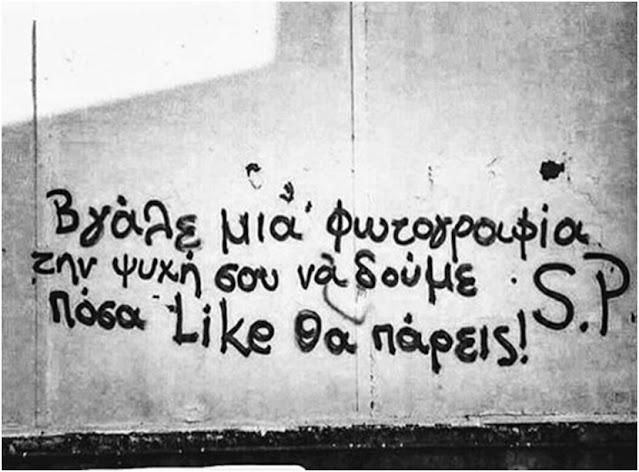 Βγάλε μιά φωτογραφία
την ψυχή σου νά δούμε
πόσα Like θα πάρεις!
S.P